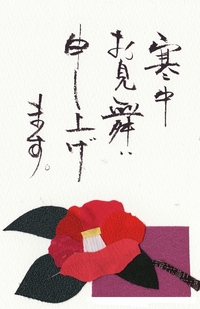 寒中
お見舞い
申し上げ
ます。